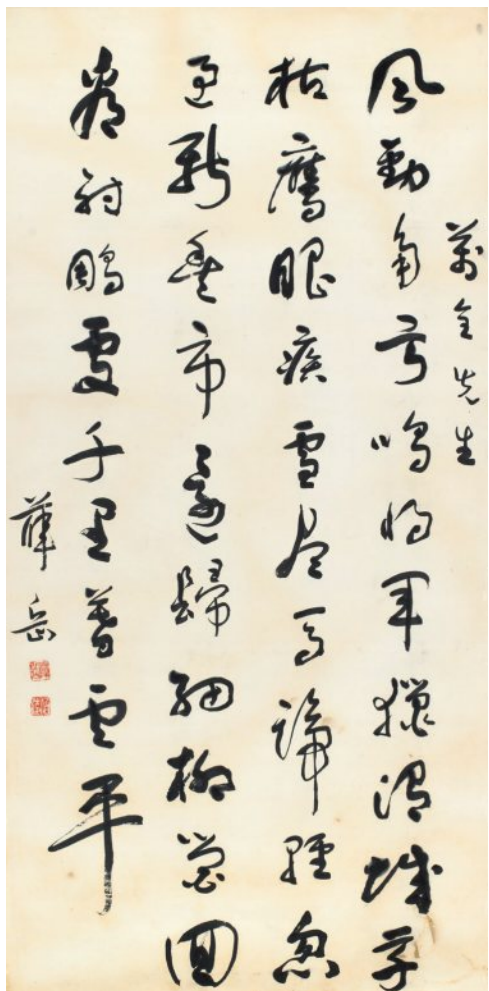 萬全先生
風勁角弓鳴將軍獵渭城草
枯鷹眼疾雪盡馬蹄輕忽
過新豐市還歸細柳營回
看射鵰處千里暮雲平
薛岳